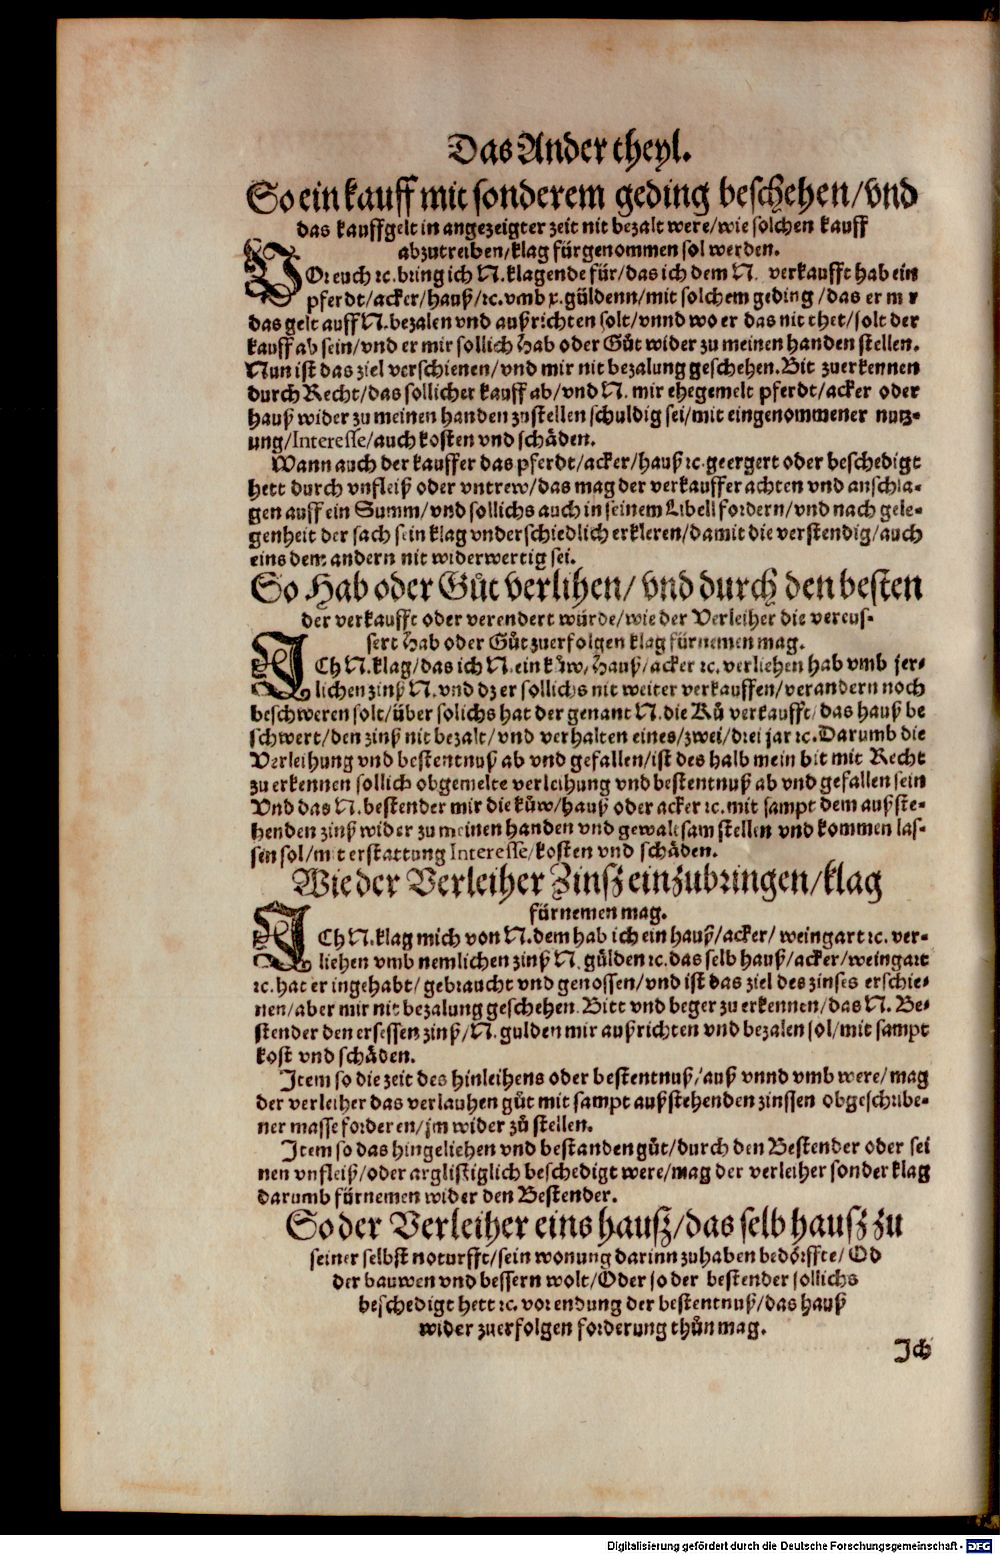 Das Ander theyl.
So ein kauff mit sonderem geding beschehen/vnd
das kauffgelt in angezeigter zeit nit bezalt were/wie solchen kauff
abzutreiben/klag fürgenommen sol werden.
VOr euch ꝛc. bring ich N. klagende für/das ich dem N. verkaufft hab ein
pferdt/acker/hauß/ꝛc. vmb x. güldenn/mit solchem geding/das er mir
das gelt auff N. bezalen vnd außrichten solt/vnnd wo er das nit thet/solt der
kauff ab sein/vnd er mir sollich Hab oder Gůt wider zu meinen handen stellen.
Nun ist das ziel verschienen/vnd mir nit bezalung geschehen. Bit zuerkennen
durch Recht/das sollicher kauff ab/vnd N. mir ehegemelt pferdt/acker oder
hauß wider zu meinen handen zustellen schuldig sei/mit eingenommener nutz-
ung/Interesse/auch kosten vnd schäden.
Wann auch der kauffer das pferdt/acker/hauß ꝛc. geergert oder beschedigt
hett durch vnfleiß oder vntrew/das mag der verkauffer achten vnd anschla-
gen auff ein Summ/vnd sollichs auch in seinem Libell fordern/vnd nach gele-
genheit der sach sein klag vnderschiedlich erkleren/damit die verstendig/auch
eins dem andern nit widerwertig sei.
So Hab oder Gůt verlihen/vnd durch den besten
der verkaufft oder verendert würde/wie der Verleiher die vereus-
sert Hab oder Gůt zuerfolgen klag fürnemen mag.
ICh N. klag/das ich N. ein kůw/Hauß/acker ꝛc. verliehen hab vmb jer-
lichen zinß N. vnd dz er sollichs nit weiter verkauffen/verandern noch
beschweren solt/über solichs hat der genant N. die Ků verkaufft/das hauß be
schwert/den zinß nit bezalt/vnd verhalten eines/zwei/drei jar ꝛc. Darumb die
Verleihung vnd bestentnuß ab vnd gefallen/ist deshalb mein bit mit Recht
zu erkennen sollich obgemelte verleihung vnd bestentnuß ab vnd gefallen sein
Vnd das N. bestender mir die kůw/hauß oder acker ꝛc. mit sampt dem außste-
henden zinß wider zu meinen handen vnd gewaltsam stellen vnd kommen las-
sen sol/mit erstattung Interesse/kosten vnd schäden.
Wie der Verleiher Zinsz einzubringen/klag
fürnemen mag.
ICh N. klag mich von N. dem hab ich ein hauß/acker/weingart ꝛc. ver-
liehen vmb nemlichen zinß N. gülden ꝛc. das selb hauß/acker/weingart
ꝛc. hat er ingehabt/gebraucht vnd genossen/vnd ist das ziel des zinses erschie-
nen/aber mir nit bezalung geschehen. Bitt vnd beger zu erkennen/das N. Be-
stender den ersessen zinß/N. gulden mir außrichten vnd bezalen sol/mit sampt
kost vnd schäden.
Item so die zeit des hinleihens oder bestentnuß/auß vnnd vmb were/mag
der verleiher das verlauhen gůt mit sampt außstehenden zinssen obgeschribe-
ner masse forderen/jm wider zů stellen.
Item so das hingeliehen vnd bestanden gůt/durch den Bestender oder sei
nen vnfleiß/oder arglistiglich beschedigt were/mag der verleiher sonder klag
darumb fürnemen wider den Bestender.
So der Verleiher eins hausz/das selb hausz zu
seiner selbst noturfft/sein wonung darinn zuhaben bedörffte/Od
der bauwen vnd bessern wolt/Oder so der bestender sollichs
beschedigt hett ꝛc. vor endung der bestentnuß/das hauß
wider zuerfolgen forderung thůn mag.
Ich
Digitalisierung gefördert durch die Deutsche Forschungsgemeinschaft - DFG